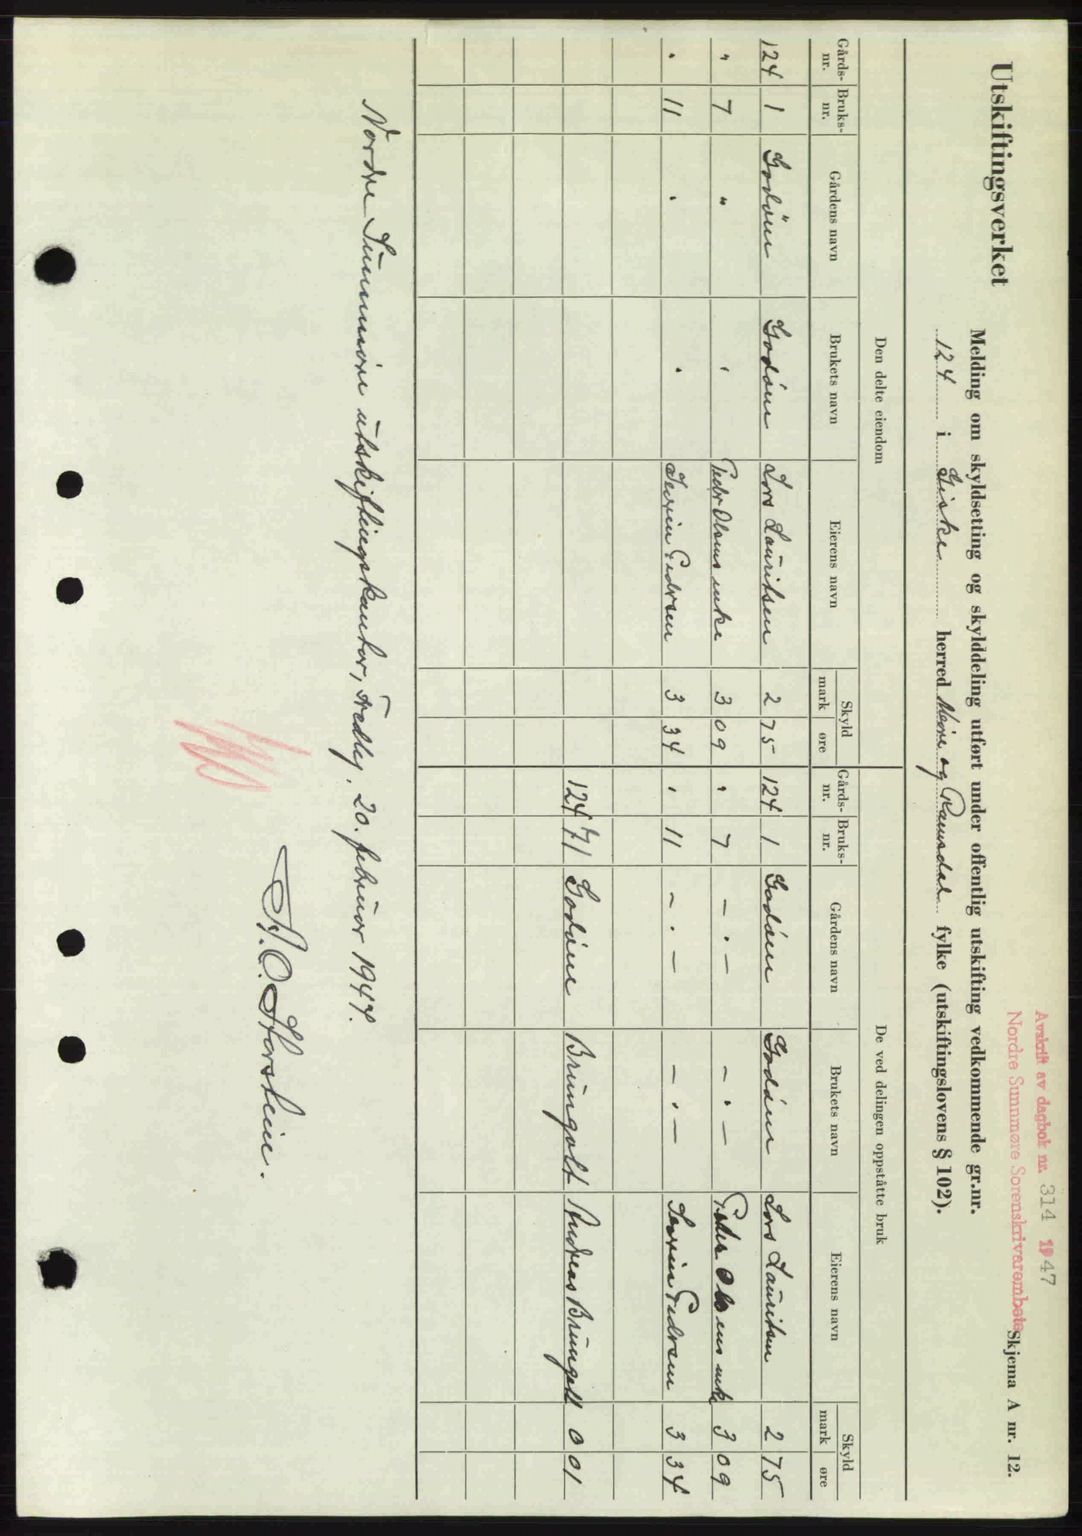 Avskrift av dagbok nr. 314 1947
Nordre Sunnmøre Sorenskriverembete
Skjema A nr. 12.
Utskiftingsverket
Melding om skyldsetting og skylddeling utført under offentlig utskifting vedkommende gr.nr.
124 i Giske herred Møre og Romsdal fylke (utskiftingslovens § 102).
Den delte eiendom De ved delingen oppståtte bruk
Gårds-nr. Bruks-nr. Gårdens navn Brukets navn Eierens navn Skyld mark øre Gårds-nr. Bruks-nr. Gårdens navn Brukets navn Eierens navn Skyld mark øre
124 1 Godøen Godøen Lars Lauritsen 2 75 124 1 Godøen Godøen Lars Lauritsen 2 75
" 7 " " Peder Olsens enke 3 09 " 7 - " - - " - Peder Olsens enke 3 09
" 11 " " Severin Pedersen 3 34 " 11 - " - - " - Severin Pedersen 3 34
124 71 Godøene Brungolt Andreas Brungolt 0 01
Nordre Sunnmøre utskiftingskontor, Fredly, 20. februar 1947.